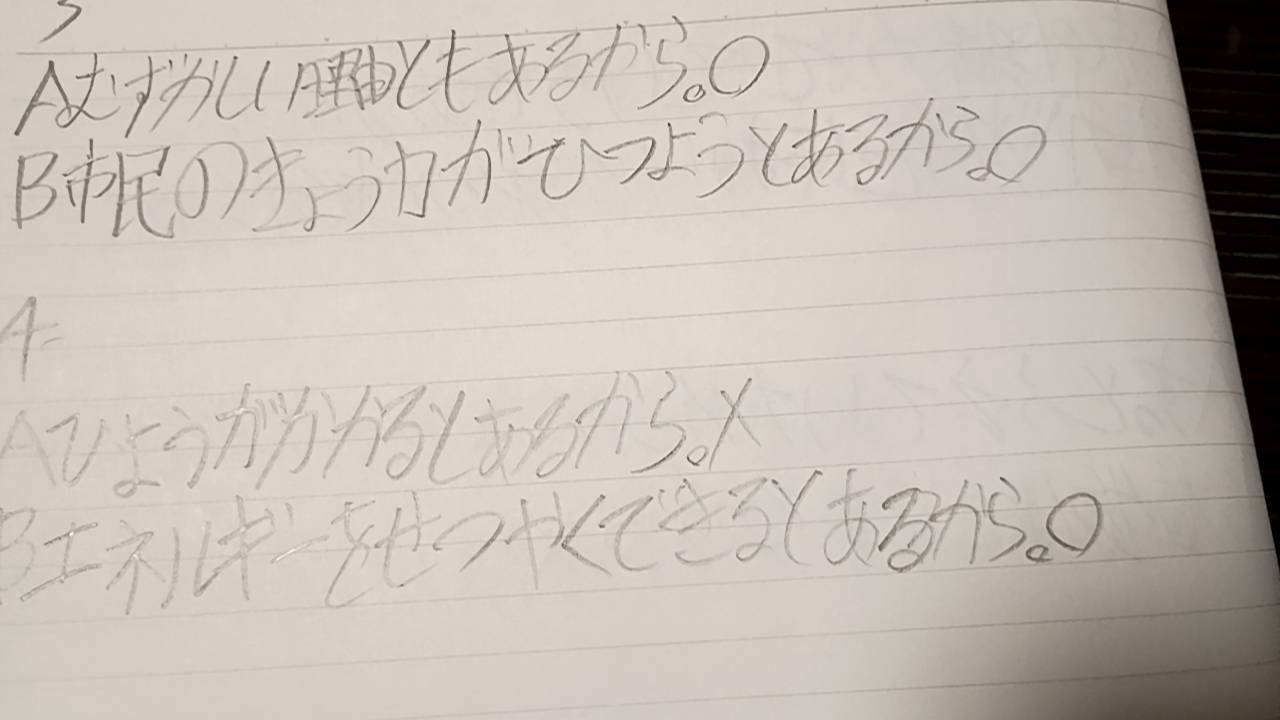 3
Aむずかしいともあるから。○
B市民のきょう力がひつようとあるから。○
4
Aひようがかかるとあるから。×
Bエネルギーをせつやくできるとあるから。○